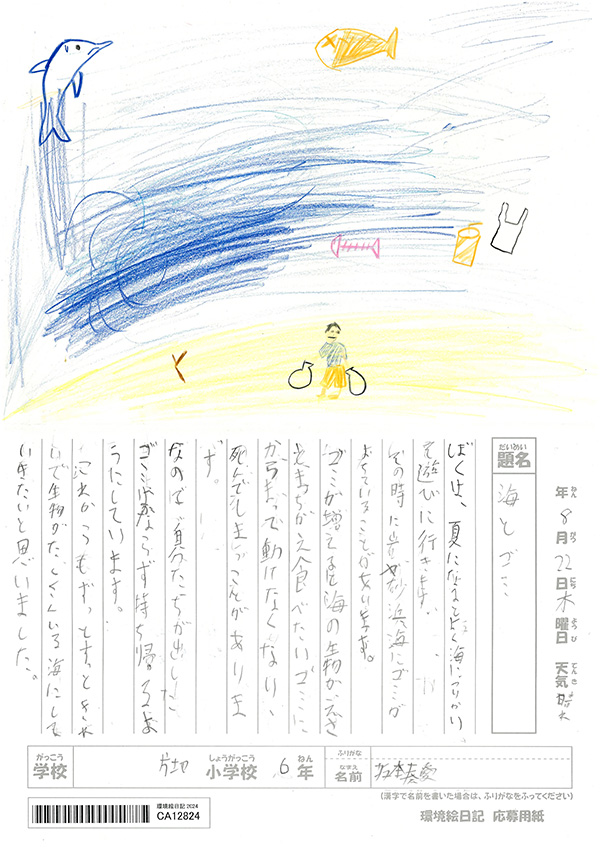 年 8月22日木曜日 天気 晴れ
ねん がつ にち ようび てんき
だいめい
題名
海とゴミ
ぼくは、夏になるとよく海につりかい
を遊びに行きます。
その時に岩や砂浜海にゴミが
よていることがあります。
ゴミが増えると海の生物がえさ
とまちがえ食べたいゴミに
からまって動けなくなり、
死んでしまうことがありま
す。
なので自分たちが出した
ゴミはかならず持ち帰るよ
うにしています。
これからもずっとずっときれ
いで生物がたくさんいる海にして
いきたいと思いました。
がっこう
学校
しょうがっこう
小学校
6年
ねん
ふりがな
なまえ
名前
(漢字で名前を書いた場合は、ふりがなをふってください)
環境絵日記2024
CA12824
環境絵日記 応募用紙